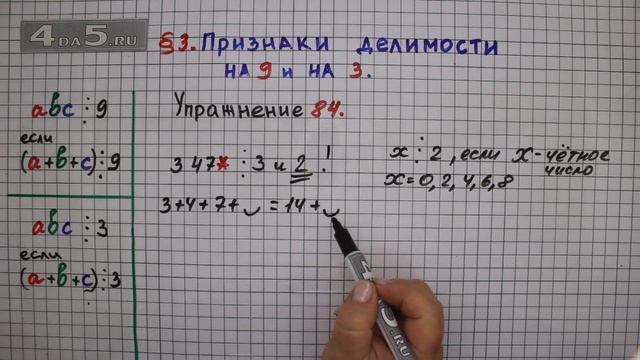 4DA5.RU
§3. Признаки делимости
на 9 и на 3.
abc ⋮ 9
если
(a+b+c) ⋮ 9
abc ⋮ 3
если
(a+b+c) ⋮ 3
Упражнение 84.
3 47* ⋮ 3 и 2 !
3+4+7+◡ = 14+◡
x ⋮ 2, если x - чётное
число
x = 0, 2, 4, 6, 8